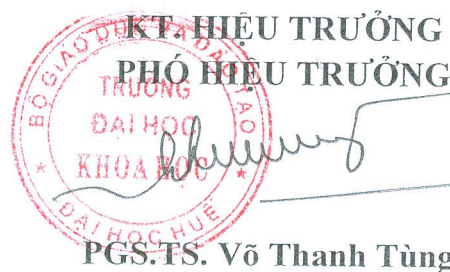 KT. HIỆU TRƯỞNG
PHÓ HIỆU TRƯỞNG
BỘ GIÁO DỤC VÀ ĐÀO TẠO
TRƯỜNG
ĐẠI HỌC
KHOA HỌC
ĐẠI HỌC HUẾ
PGS.TS. Võ Thanh Tùng